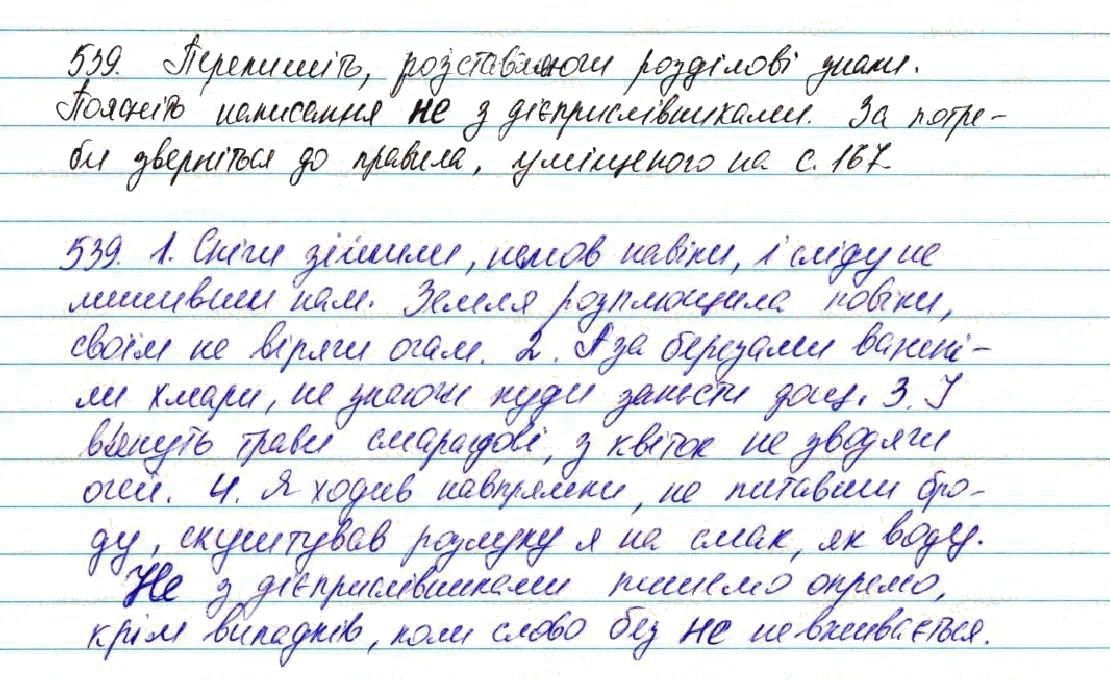 539. Перепишіть, розставляючи розділові знаки.
Поясніть написання не з дієприслівниками. За потре-
би зверніться до правила, уміщеного на с. 167
539. 1. Сніги зійшли, немов навіки, і сліду не
лишивши нам. Земля розплющила повіки,
своїм не вірячи очам. 2. А за березами важчі-
ли хмари, не знаючи куди занести дощ. 3. І
в'януть трави смарагдові, з квіток не зводячи
очей. 4. Я ходив навпрямки, не питавши бро-
ду, скуштував розлуку я на смак, як воду.
Не з дієприслівниками пишемо окремо,
крім випадків, коли слово без не не вживається.